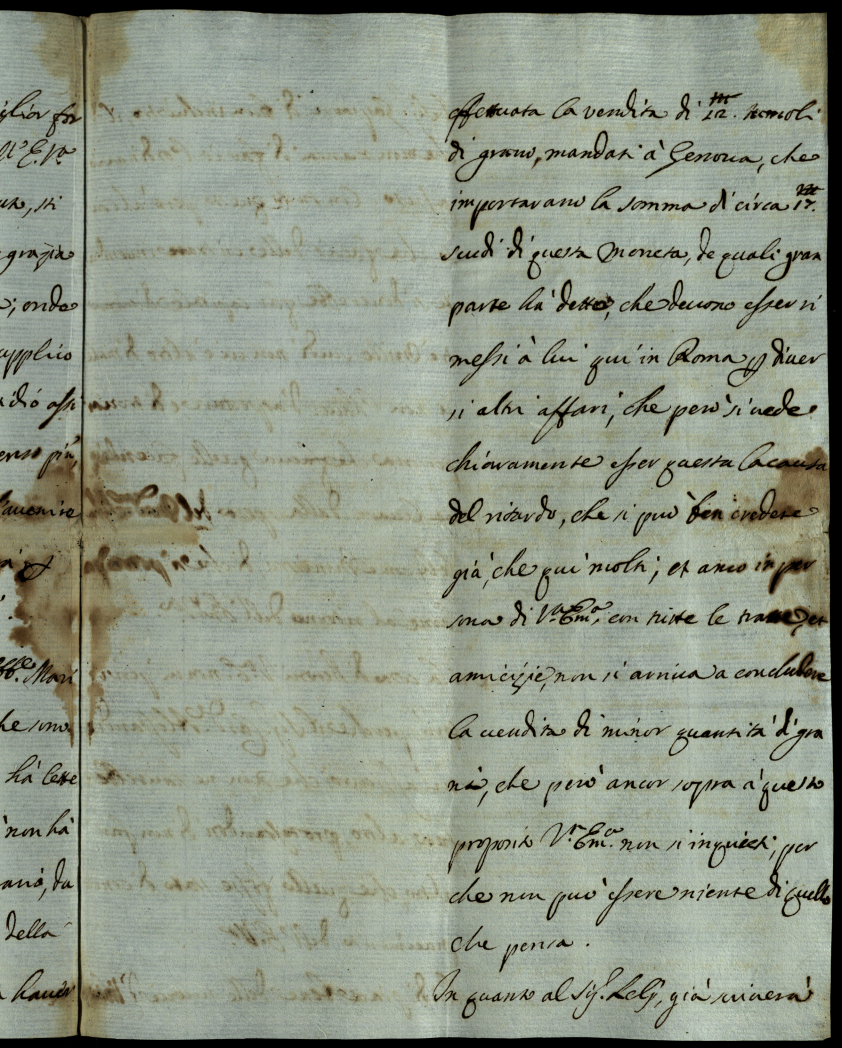 glior for
V.E.V.
grazia
; onde
applico
più,
l'avenire
Mari
che sono
hà lette
non hà
della
haver
effettuata la vendita di 12.m tumoli
di grano, mandati à Genova, che
importavano la somma di circa 17.m
scudi di questa moneta, de quali gran
parte hà detto, che devono esser ri
messi à lui qui in Roma p diver
si altri affari, che però si vede
chiaramente esser questa la causa
del ritardo, che si può ben credere
già, che qui molti, et anco in per
sona di V.ra Em.a, con tutte le trame, et
amicizie, non si arriva a concludere
la vendita di minor quantità di gra
ni, che però ancor sopra à questo
proposito V.ra Em.a non s'inquieti, per
che non può essere niente di quello
che pensa.
In quanto al Sig.r Lelj, già scriverà